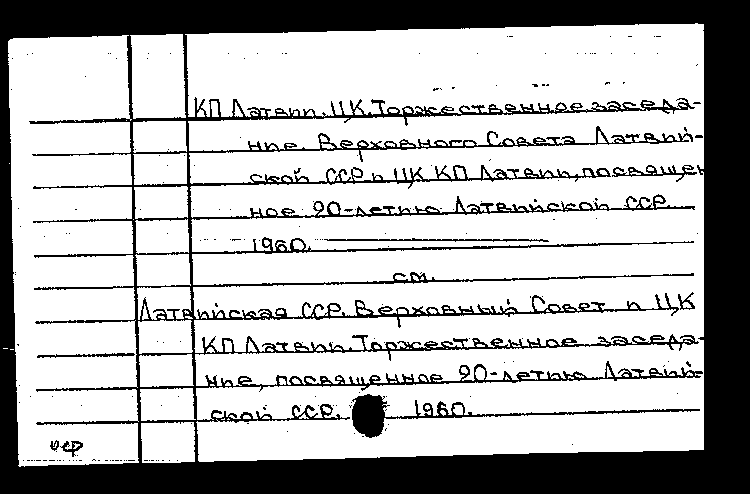 КП Латвии. ЦК. Торжественное заседа-
ние Верховного Совета Латвий-
ской ССР и ЦК КП Латвии, посвящен
ное 20-летию Латвийской ССР.
1960.
см.
Латвийская ССР. Верховный Совет и ЦК
КП Латвии. Торжественное заседа-
ние, посвященное 20-летию Латвий-
ской ССР. 1960.